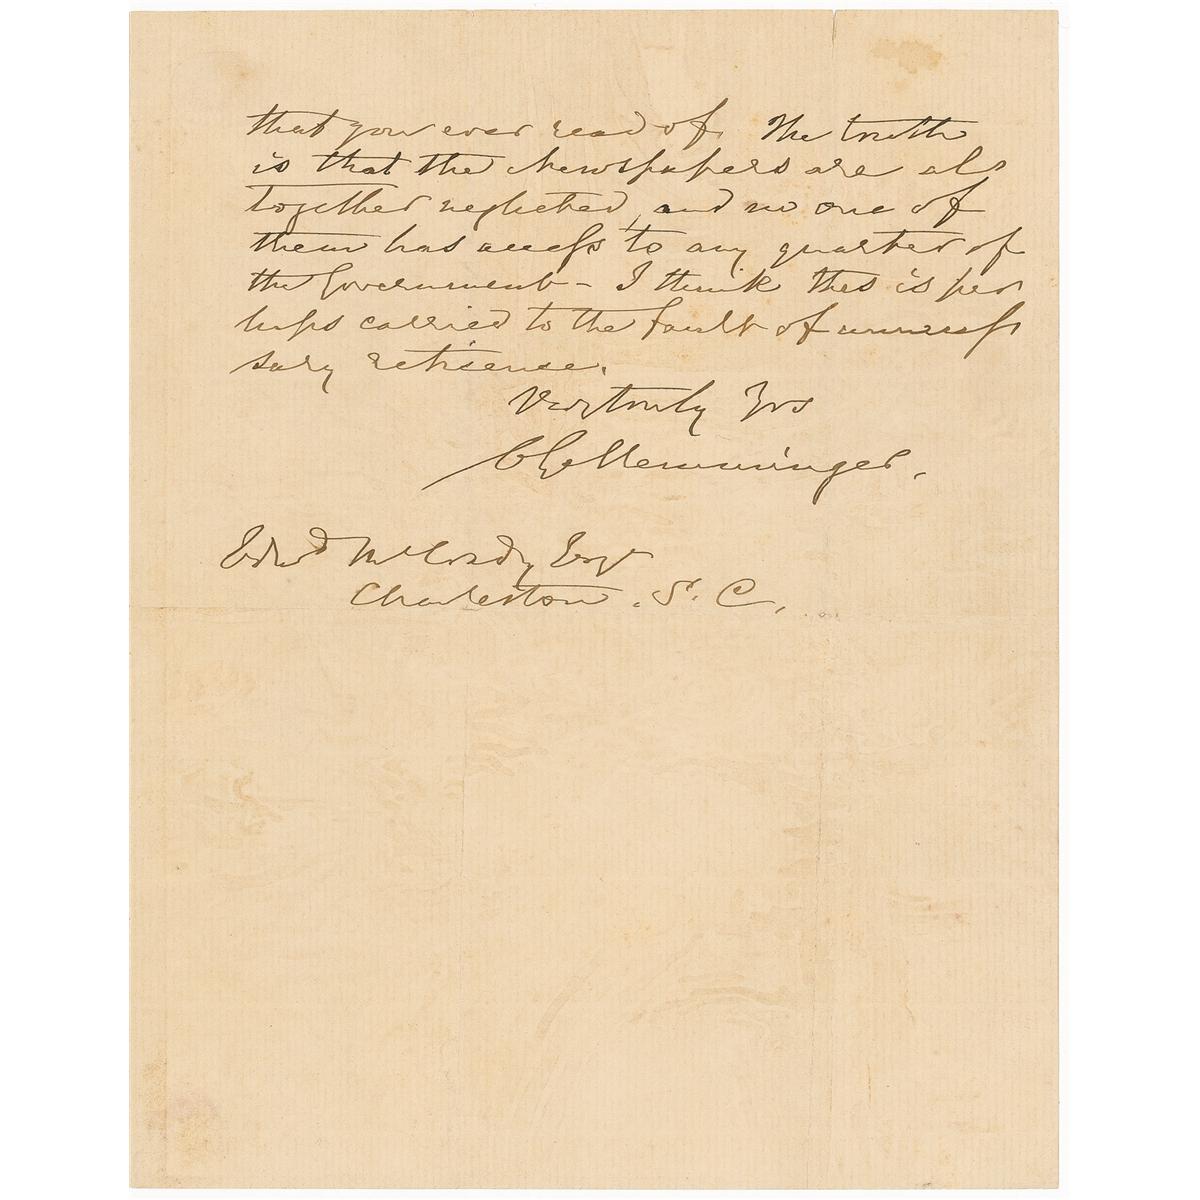 that you ever read of. The truth
is that the Newspapers are al
together neglected, and no one of
them has access to any quarter of
the Government - I think this is per
haps carried to the fault of unneces
sary retisence.
Very truly Yrs
C G Memminger.
Edwd McCrady Esqr
Charleston. S. C.